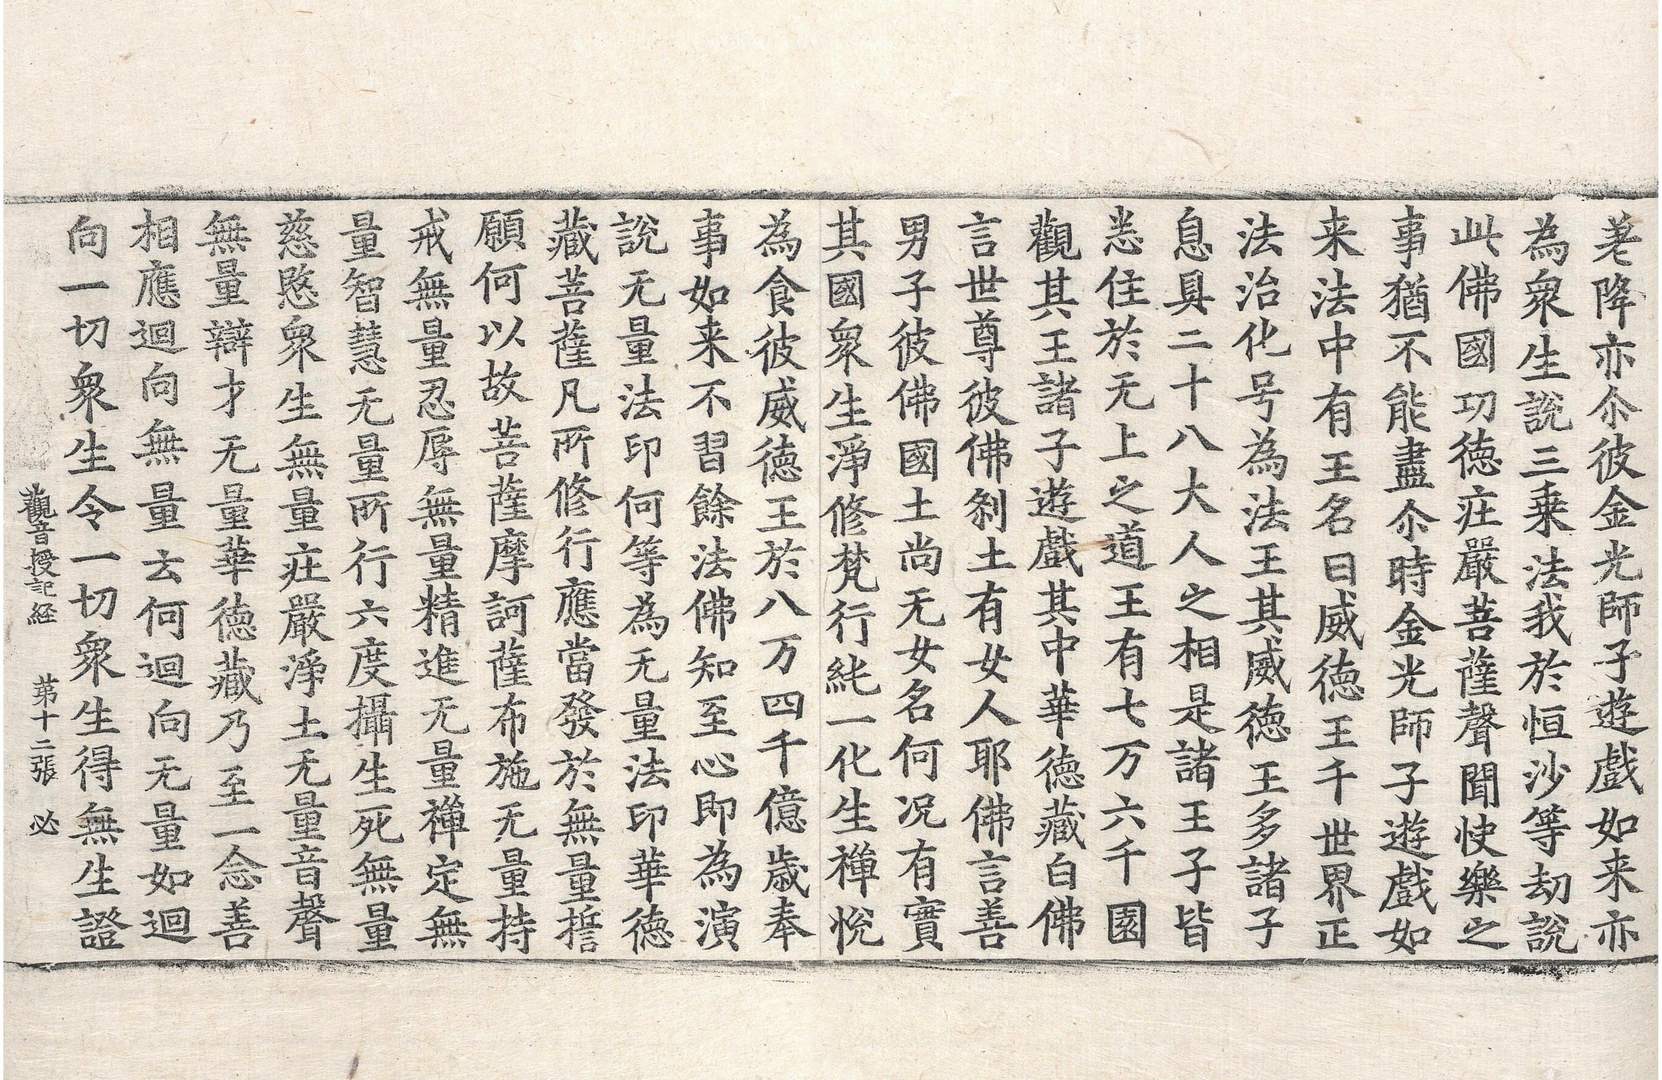 差降亦尒彼金光師子遊戲如来亦
為衆生說三乗法我於恒沙等劫說
此佛國功徳荘嚴菩薩聲聞快樂之
事猶不能盡尒時金光師子遊戲如
来法中有王名曰威徳王千世界正
法治化号為法王其威徳王多諸子
息具二十八大人之相是諸王子皆
悉住於无上之道王有七万六千園
觀其王諸子遊戲其中華徳藏白佛
言世尊彼佛刹土有女人耶佛言善
男子彼佛國土尚无女名何况有實
其國衆生淨修梵行純一化生禪悅
為食彼威徳王於八万四千億歳奉
事如来不習餘法佛知至心即為演
說无量法印何等為无量法印華徳
藏菩薩凡所修行應當發於無量誓
願何以故菩薩摩訶薩布施无量持
戒無量忍辱無量精進无量禪定無
量智慧无量所行六度攝生死無量
慈愍衆生無量荘嚴淨土无量音聲
無量辯才无量華徳藏乃至一念善
相應迴向無量云何迴向无量如迴
向一切衆生令一切衆生得無生證
觀音授記経 第十二張 必